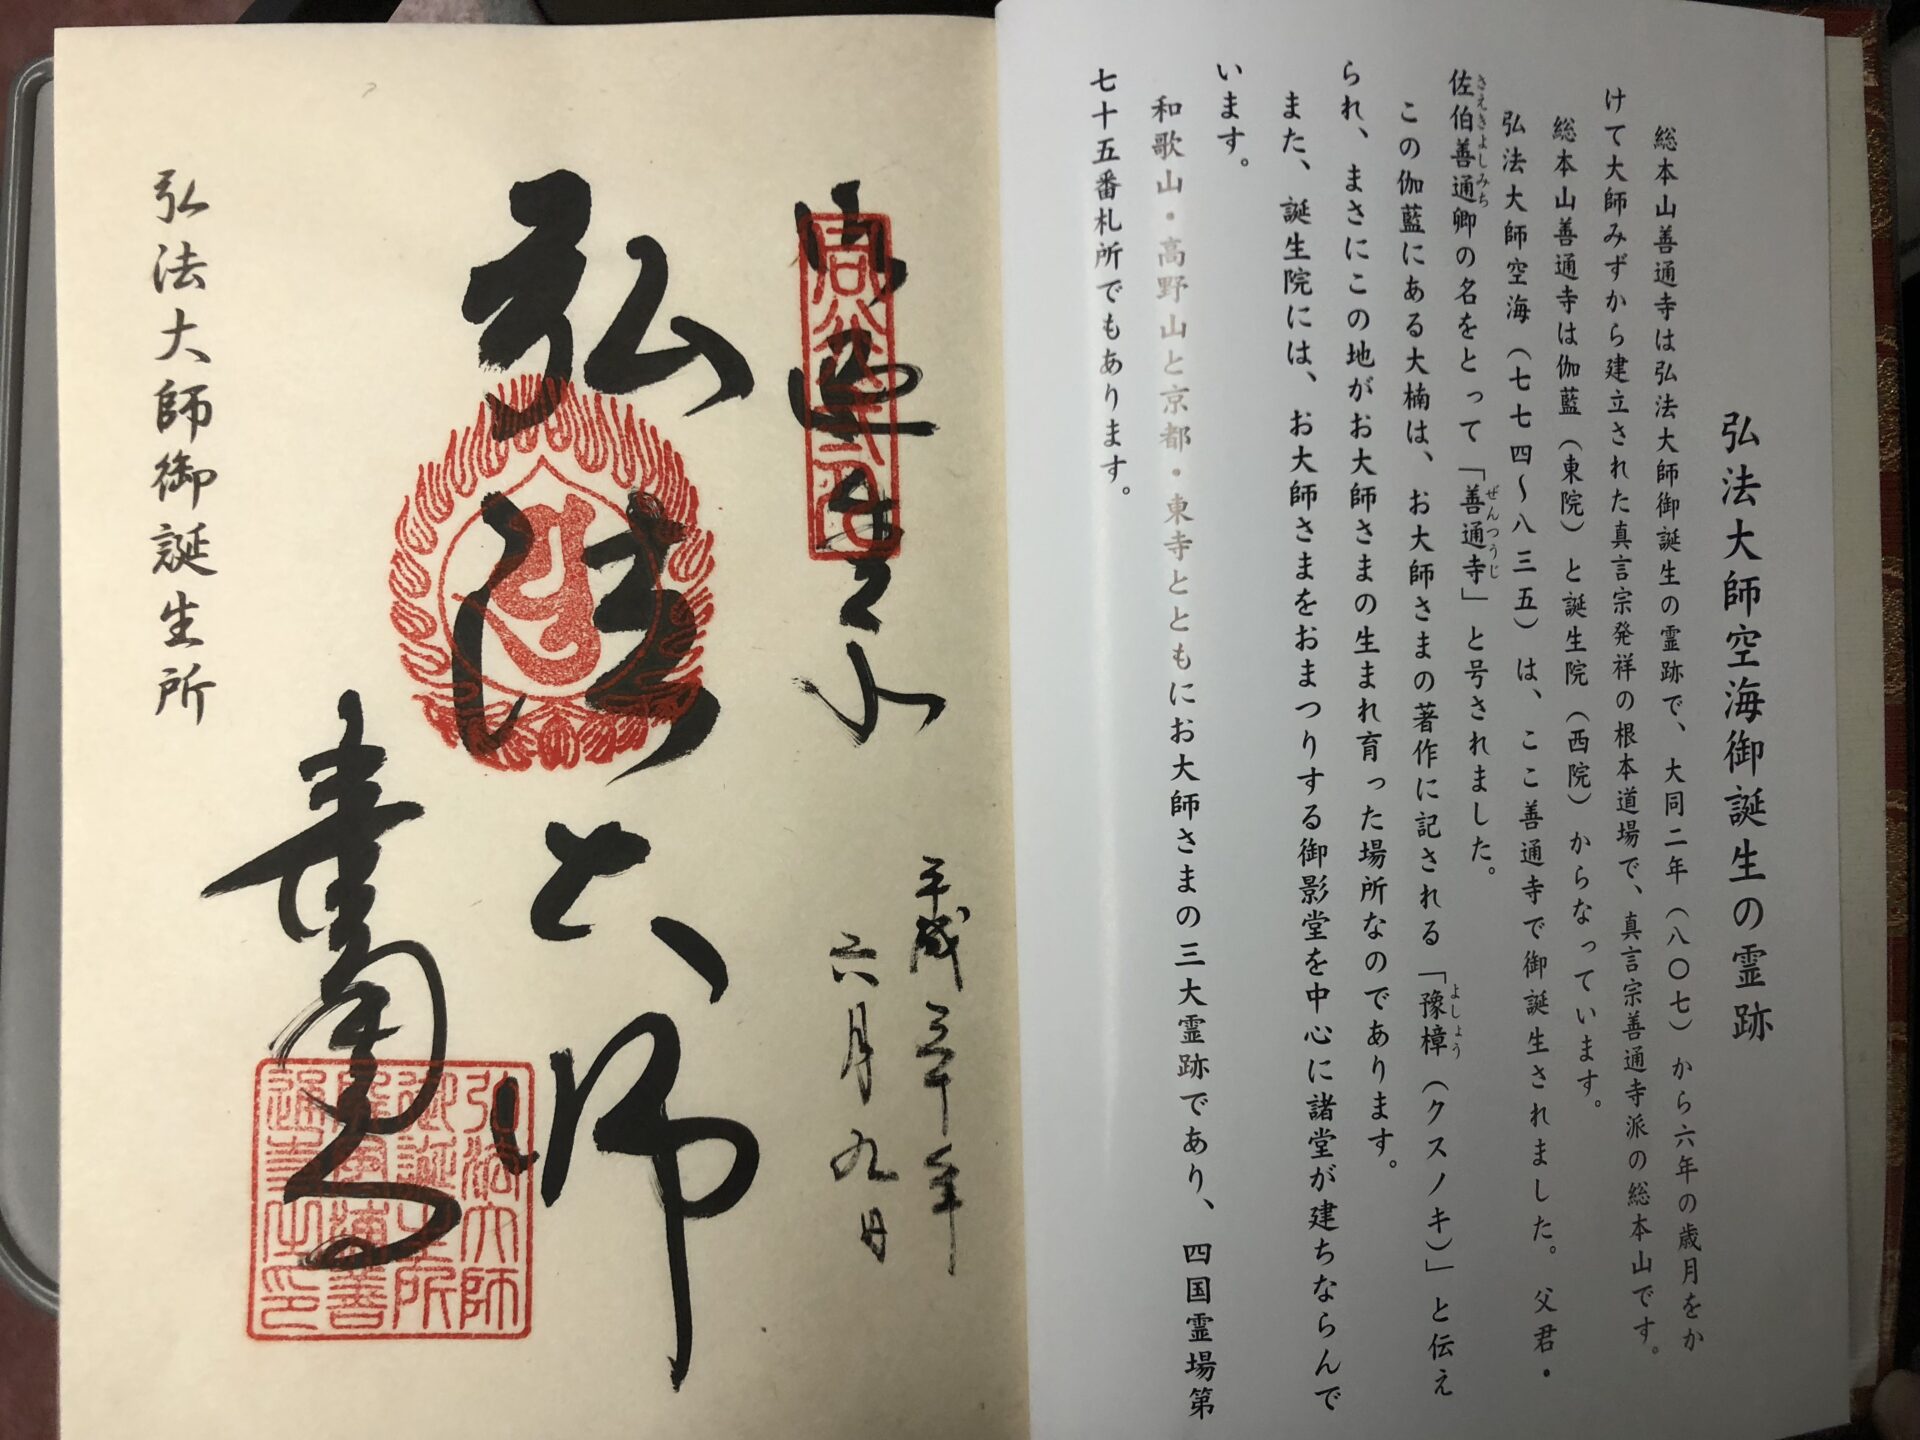 弘法大師空海御誕生の霊跡
総本山善通寺は弘法大師御誕生の霊跡で、大同二年（八〇七）から六年の歳月をか
けて大師みずから建立された真言宗発祥の根本道場で、真言宗善通寺派の総本山です。
総本山善通寺は伽藍（東院）と誕生院（西院）からなっています。
弘法大師空海（七七四～八三五）は、ここ善通寺で御誕生されました。父君・
佐伯善通卿の名をとって「善通寺」と号されました。
さえきよしみち
ぜんつうじ
この伽藍にある大楠は、お大師さまの著作に記される「豫樟（クスノキ）」と伝え
よしょう
られ、まさにこの地がお大師さまの生まれ育った場所なのであります。
また、誕生院には、お大師さまをおまつりする御影堂を中心に諸堂が建ちならんで
います。
和歌山・高野山と京都・東寺とともにお大師さまの三大霊跡であり、四国霊場第
七十五番札所でもあります。
平成三十年
六月九日
弘法大師
弘法大師
御誕生所
通寺之印
弘法大師御誕生所